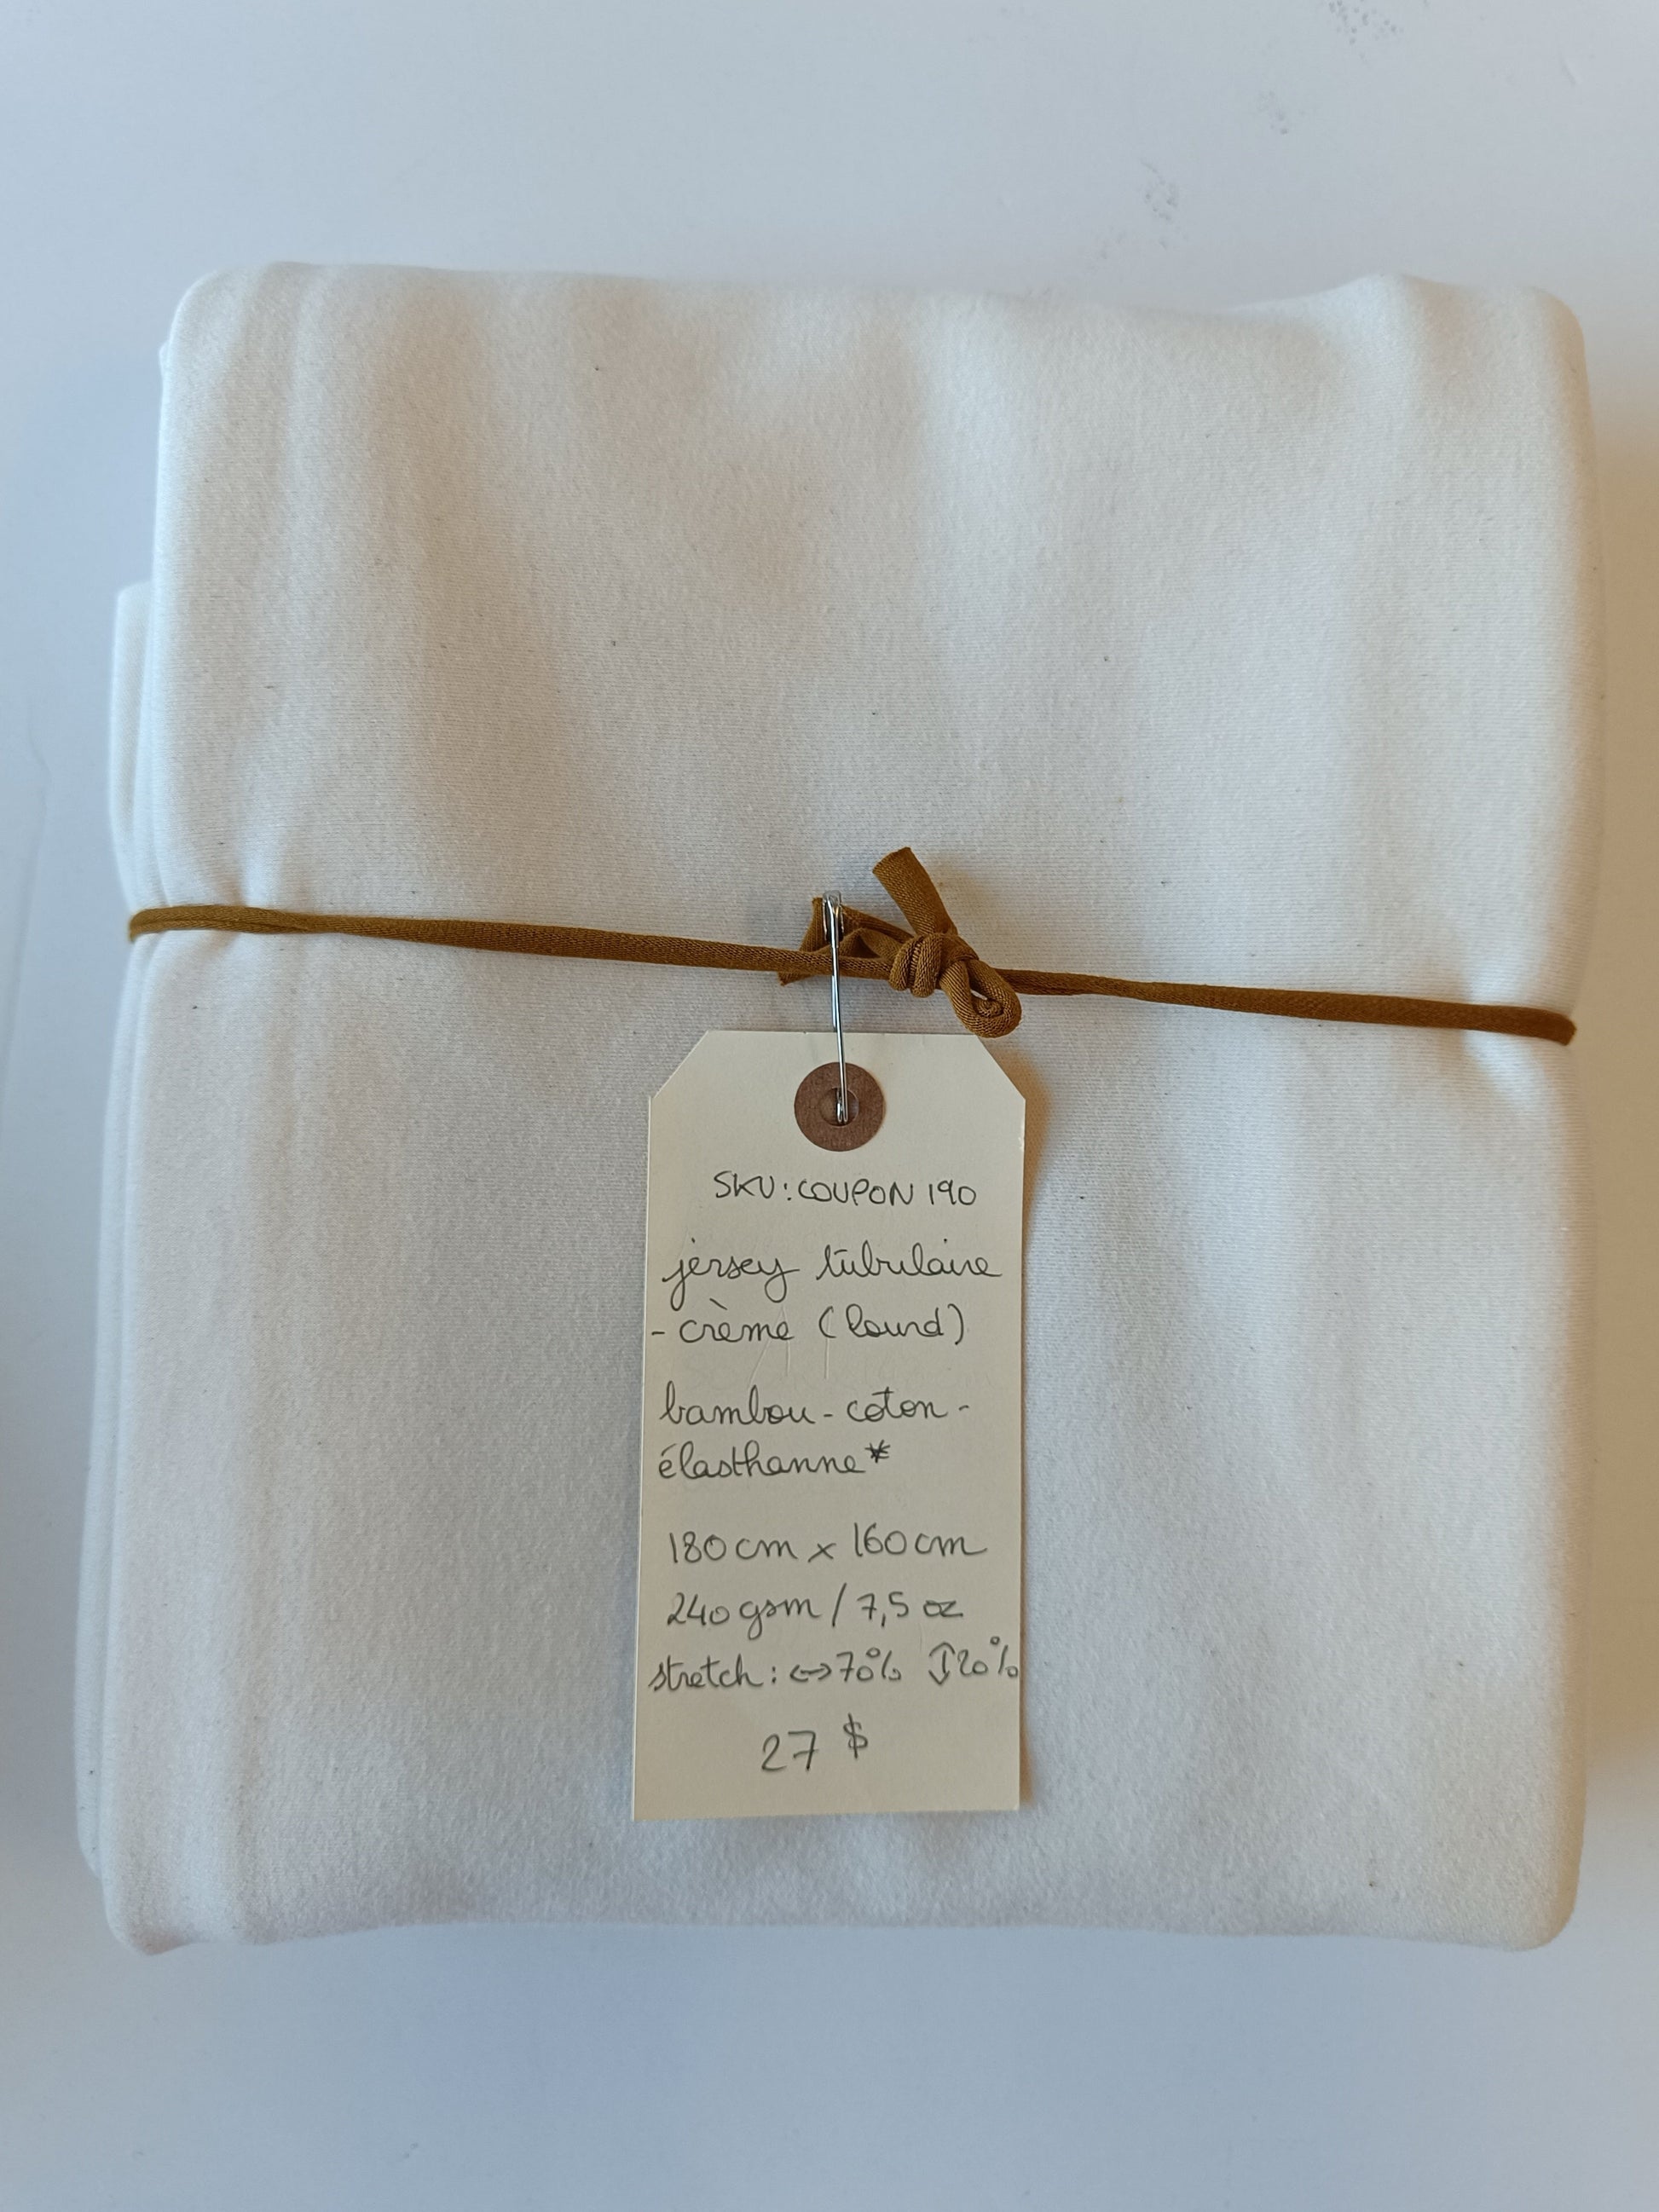 SKU: COUPON 190
jersey tubulaire
- crème (lourd)
bambou - coton -
élasthanne*
180 cm x 160 cm
240 gsm / 7,5 oz
stretch: ↔ 70% ↕ 20%
27 $